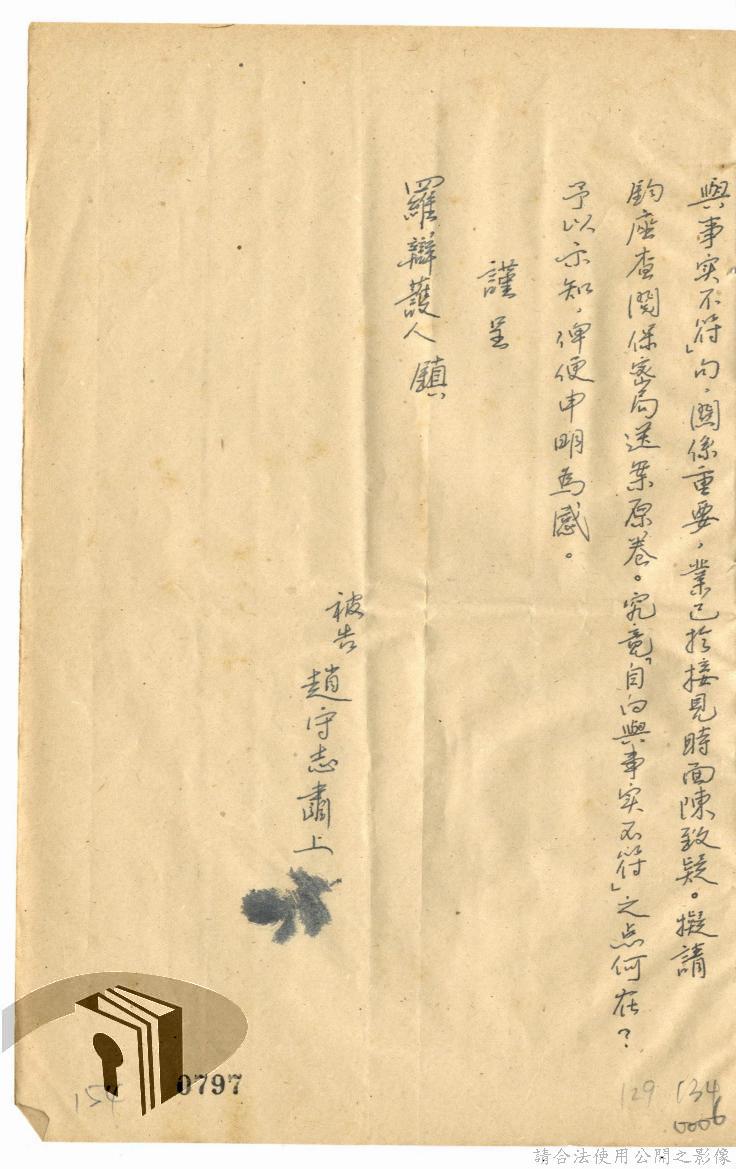 與事实不符」句，關係重要，業已於接見時面陳致疑。擬請
鈞座查閱保密局送案原卷。究竟「自白與事实不符」之点何在？
予以示知，俾便申明為感。
謹呈
羅辯護人鎮
被告 趙守志肅上
154
0797
129
134
0006
請合法使用公開之影像